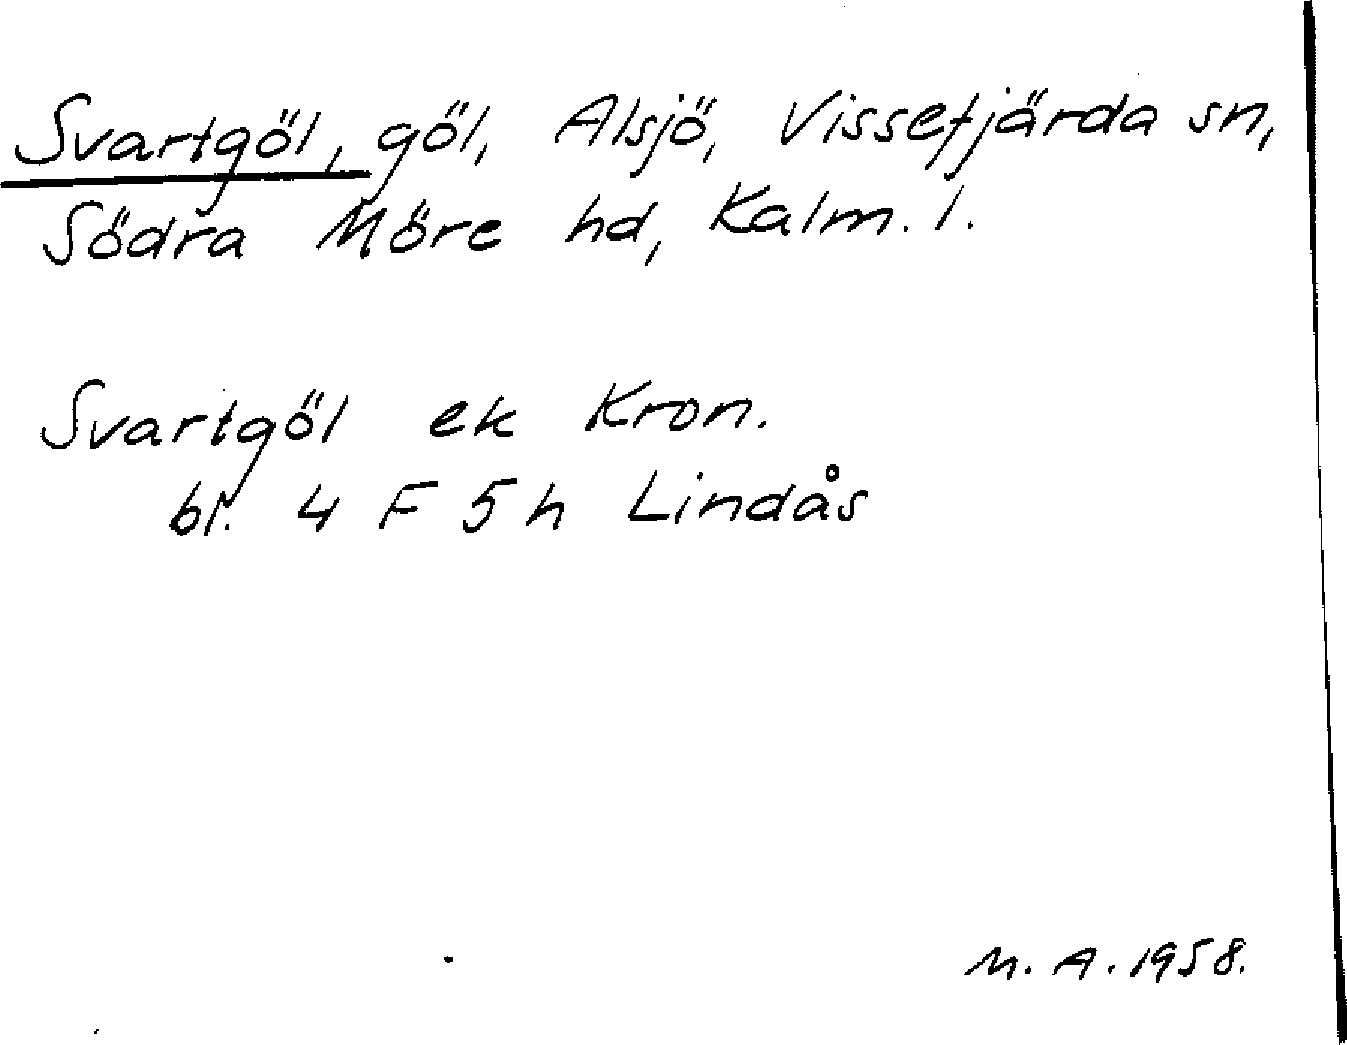 Svartgöl, göl, Alsjö, Vissefjärda sn,
Södra Möre hd, Kalm. l.
Svartgöl ek Kron.
bl. 4 F 5 h Lindås
M. A. 1958.